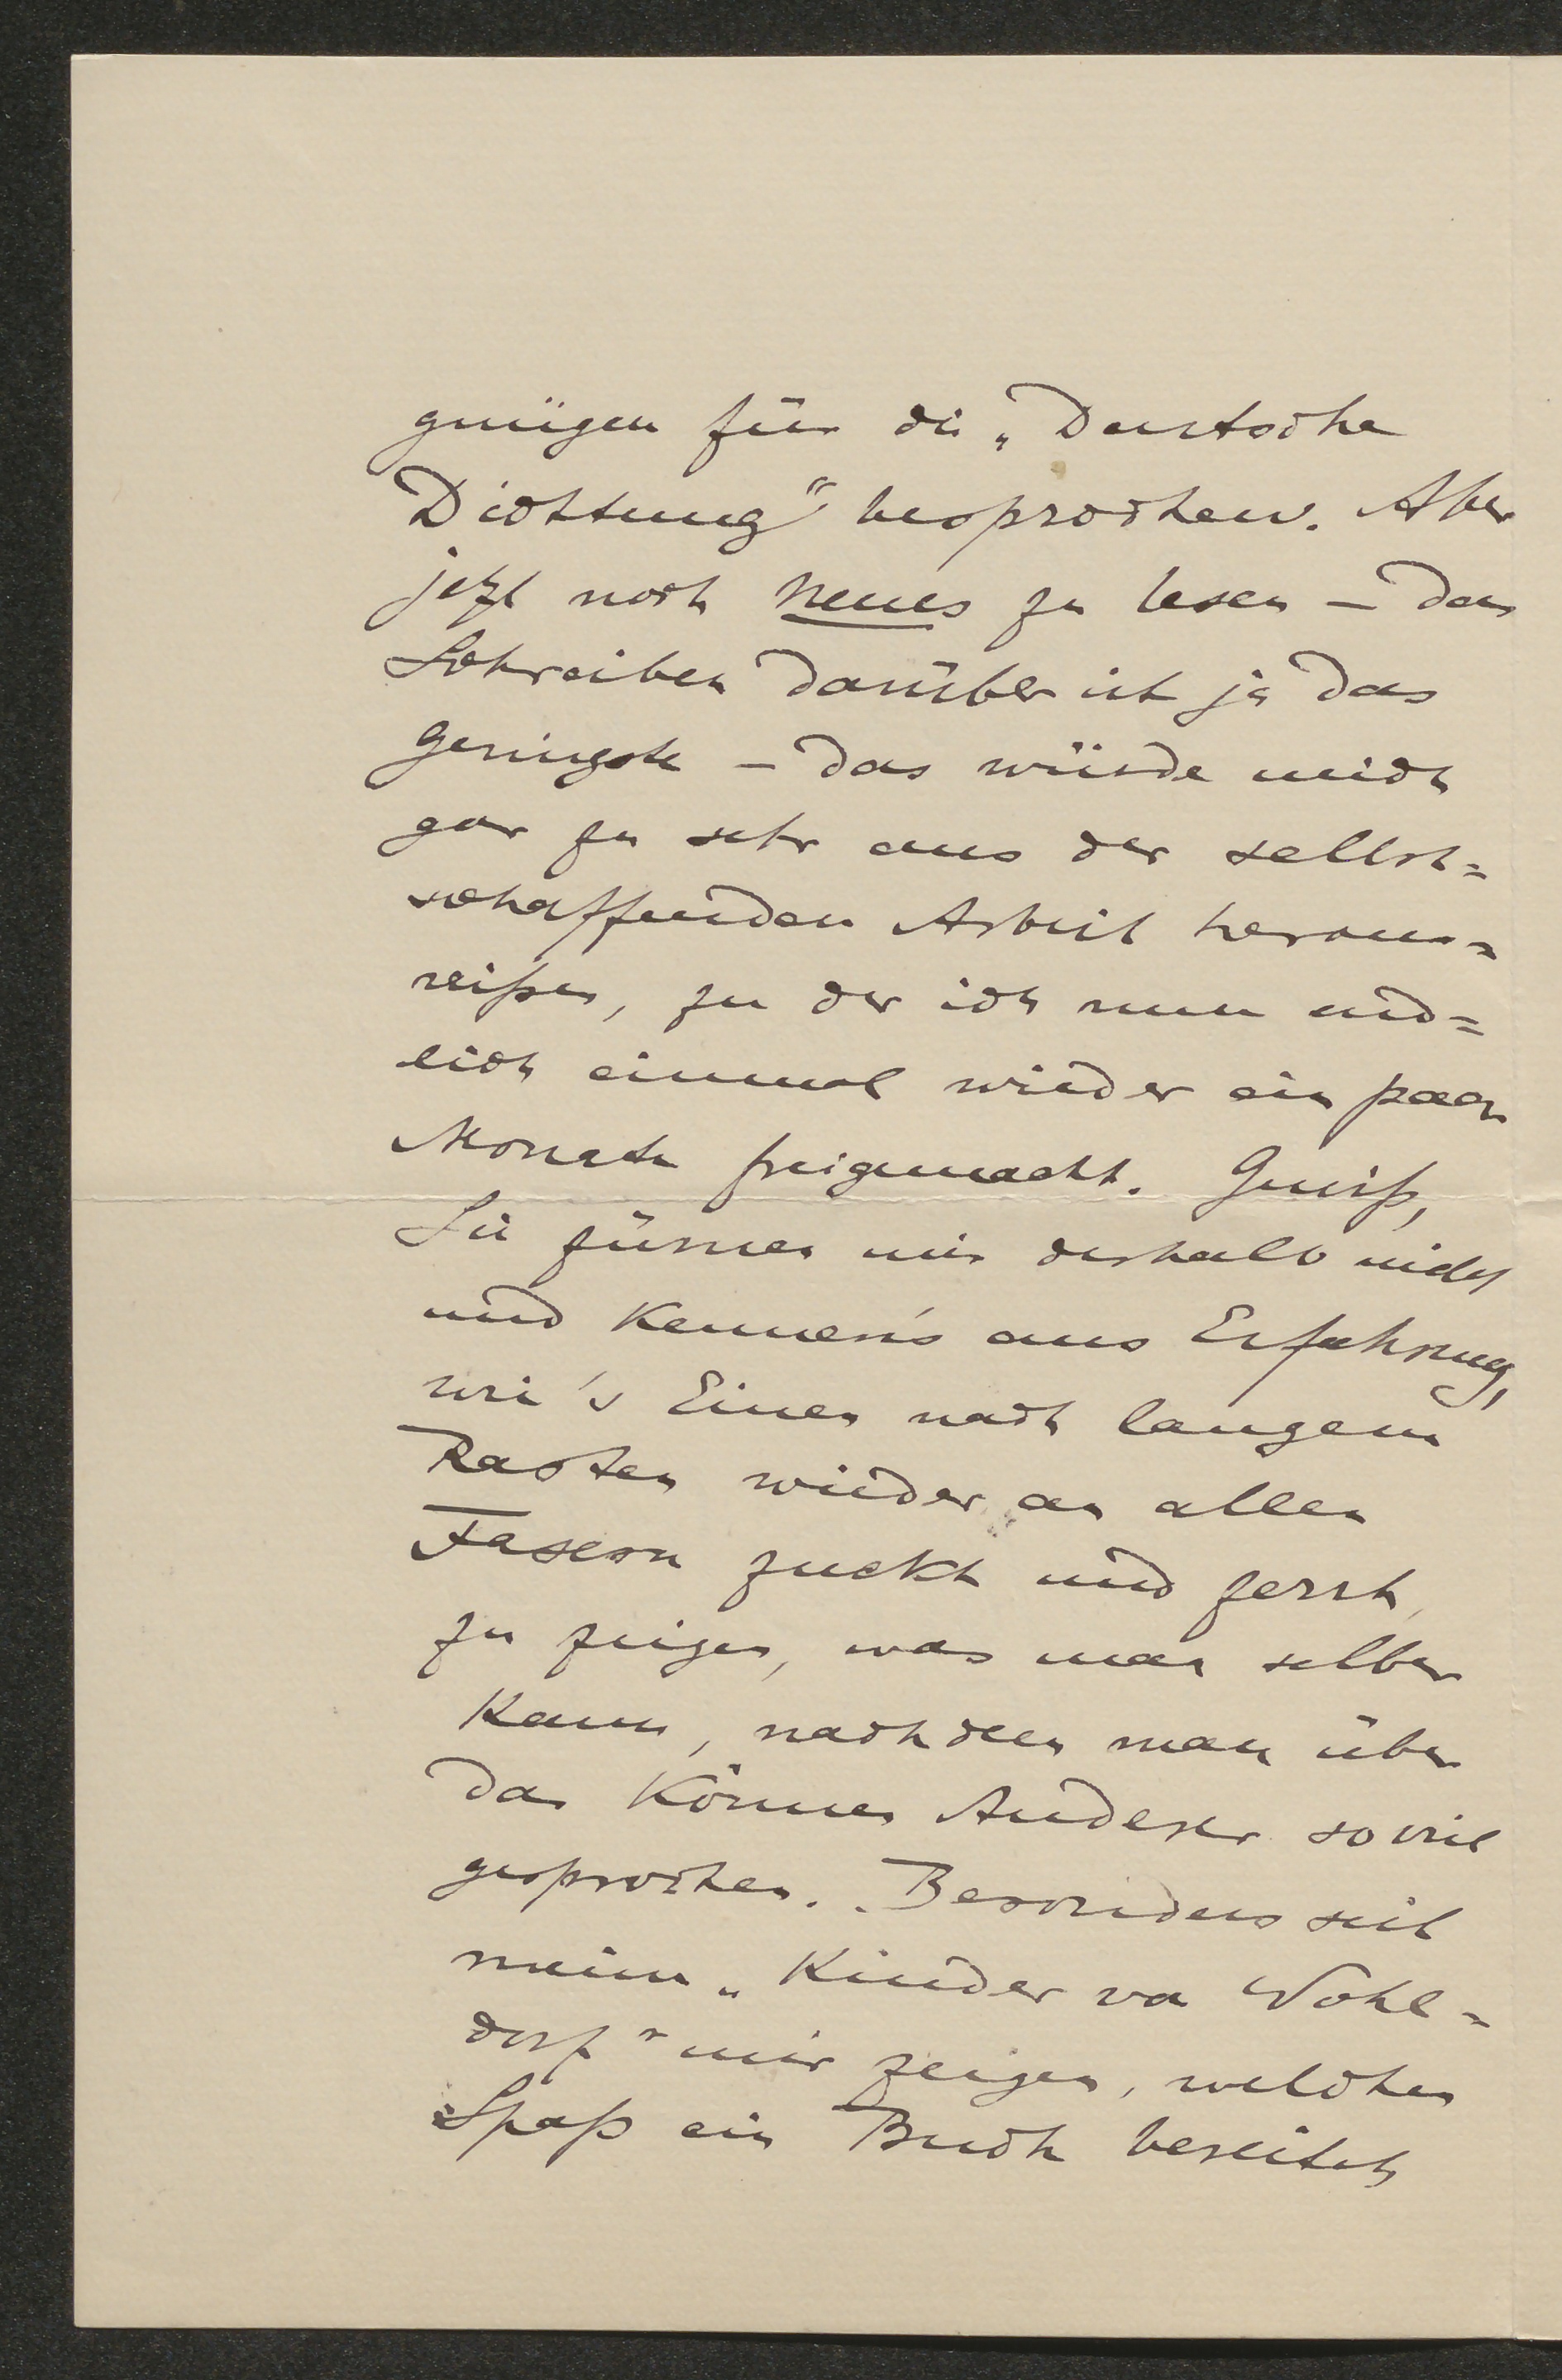 gnügen für die „Deutsche
Dichtung“ besprochen. Aber
jetzt noch Neues zu lesen – das
Schreiben darüber ist ja das
Geringste – das würde mich
gar zu sehr aus der selbst=
schaffenden Arbeit heraus=
reißen, zu der ich nun end=
lich einmal wieder ein paar
Monate freigemacht. Gewiß,
Sie zürnen mir deshalb nicht
und kennen's aus Erfahrung,
wie's Einen nach langem
Rasten wieder an allen
Fasern zuckt und zerrt,
zu zeigen, was man selber
kann, nachdem man über
das Können Anderer soviel
gesprochen. Besonders seit
meine „Kinder von Wohl=
dorf“ mir zeigen, welchen
Spaß ein Buch bereitet,